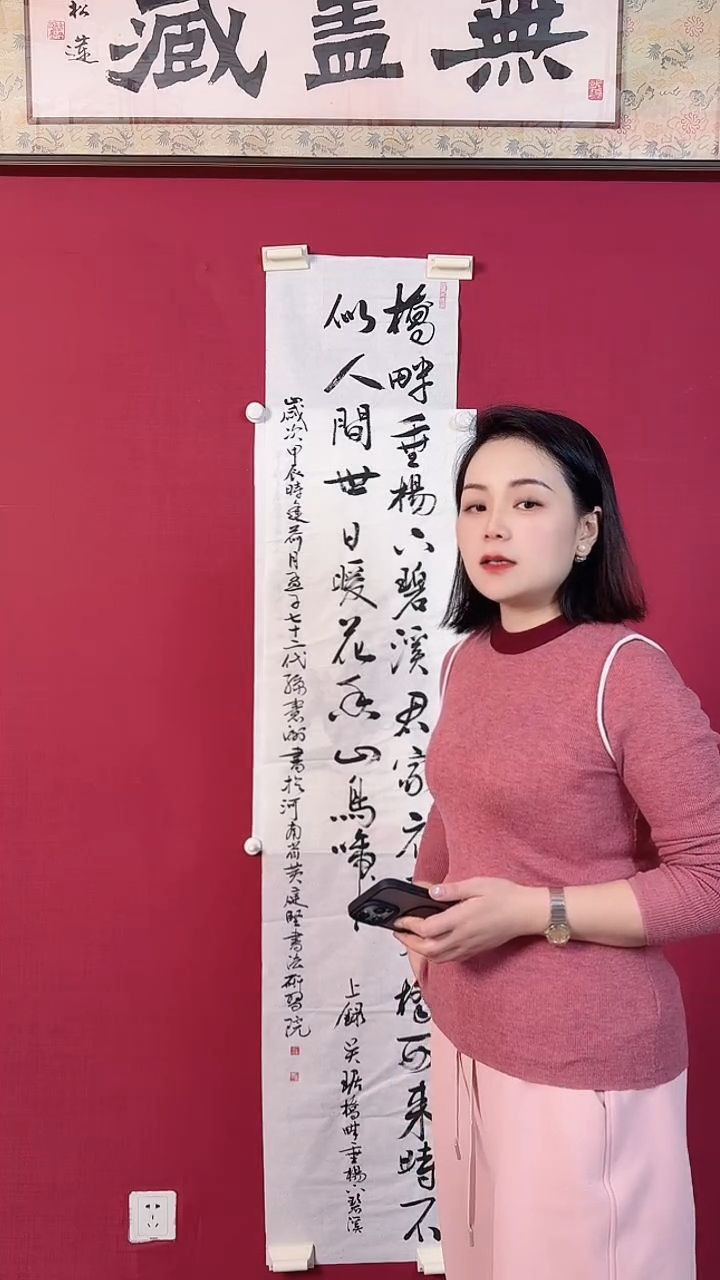 無盡藏
松蓮
橋畔垂楊下碧溪君家橋西来時不
似人間世日暖花香山鳥啼
上錄吴琚橋畔垂楊下碧溪
歲次甲辰時逢荷月孟子七十二代孫書於河南省黄庭堅書法研習院